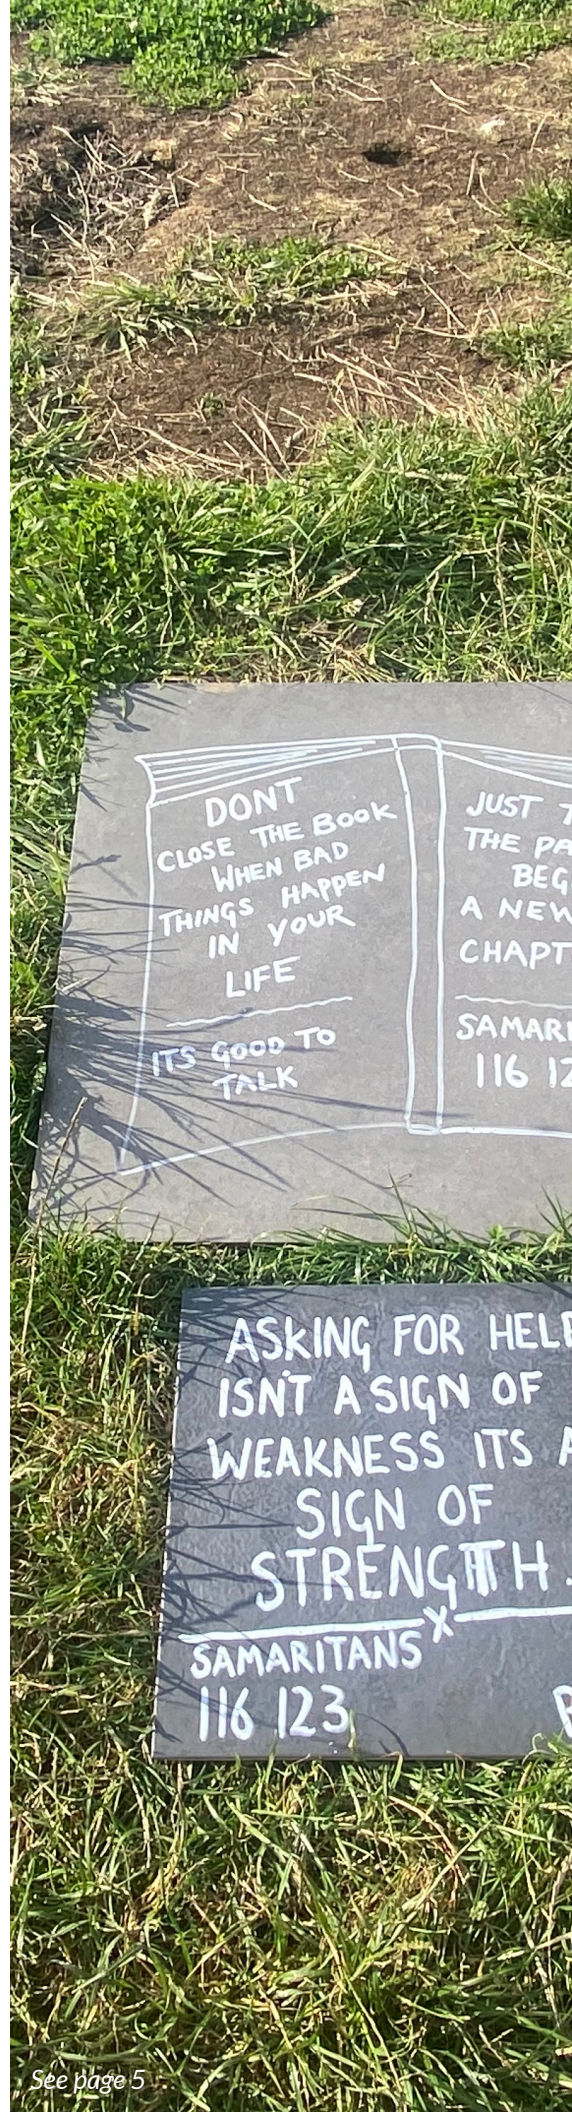 DONT
CLOSE THE BOOK
WHEN BAD
THINGS HAPPEN
IN YOUR
LIFE
ITS GOOD TO
TALK
JUST T
THE PA
BEG
A NEW
CHAPT
SAMARI
116 12
ASKING FOR HELP
ISN'T A SIGN OF
WEAKNESS ITS A
SIGN OF
STRENGTH.
X
SAMARITANS
116 123
See page 5